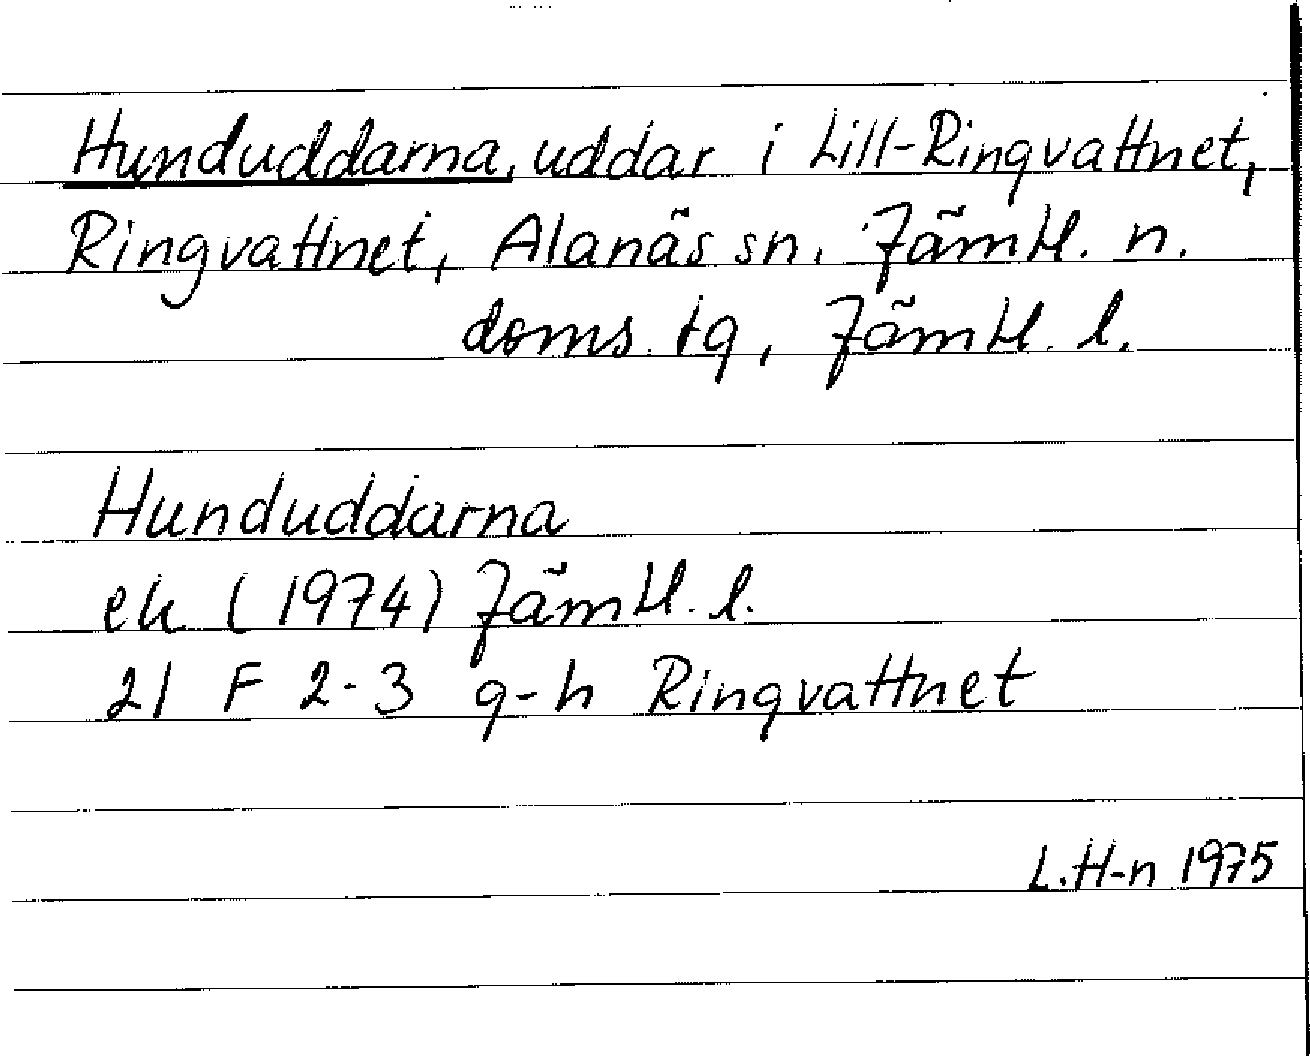 Hunduddarna, uddar i Lill-Ringvattnet,
Ringvattnet, Alanäs sn, Jämtl. n.
doms. tg, Jämtl. l.
Hunduddarna
ek (1974) Jämtl. l.
21 F 2-3 g-h Ringvattnet
L.H-n 1975